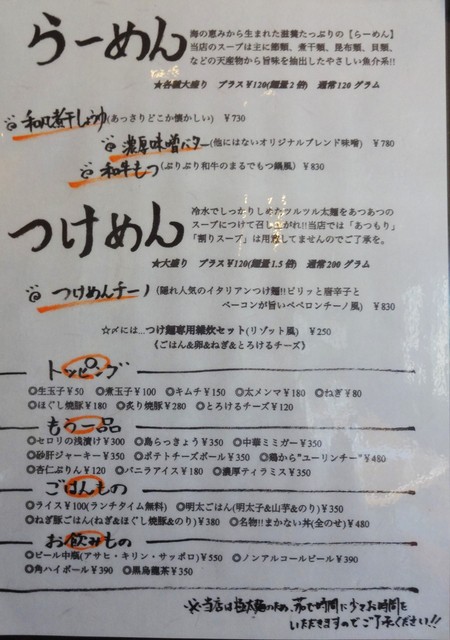 らーめん
海の恵みから生まれた滋養たっぷりの【らーめん】
当店のスープは主に節類、煮干類、昆布類、貝類、
などの天産物から旨味を抽出したやさしい魚介系!!
★各種大盛り プラス¥120(麺量2倍) 通常120グラム
和風煮干しょうゆ(あっさりどこか懐かしい) ¥730
濃厚味噌バター(他にはないオリジナルブレンド味噌) ¥780
和牛もつ(ぷりぷり和牛のまるでもつ鍋風) ¥830
つけめん
冷水でしっかりしめたツルツル太麺をあつあつの
スープにつけて召し上がれ!!当店では「あつもり」
「割りスープ」は用意してませんのでご了承を。
★大盛り プラス¥120(麺量1.5倍) 通常200グラム
つけめんチーノ(隠れ人気のイタリアンつけ麺!!ピリッと唐辛子と
ベーコンが旨いペペロンチーノ風) ¥830
☆〆には…つけ麺専用雑炊セット(リゾット風) ¥250
《ごはん&卵&ねぎ&とろけるチーズ》
トッピング
◎生玉子¥50 ◎煮玉子¥100 ◎キムチ¥150 ◎太メンマ¥180 ◎ねぎ¥80
◎ほぐし焼豚¥180 ◎炙り焼豚¥280 ◎とろけるチーズ¥120
もう一品
◎セロリの浅漬け¥300 ◎島らっきょう¥350 ◎中華ミミガー¥350
◎砂肝ジャーキー¥350 ◎ポテトチーズボール¥350 ◎鶏から"ユーリンチー"¥480
◎杏仁ぷりん¥120 ◎バニラアイス¥180 ◎濃厚ティラミス¥350
ごはんもの
◎ライス¥100(ランチタイム無料) ◎明太ごはん(明太子&山芋&のり)¥350
◎ねぎ豚ごはん(ねぎ&ほぐし焼豚&のり)¥380 ◎名物!!まかない丼(全のせ)¥480
お飲みもの
◎ビール中瓶(アサヒ・キリン・サッポロ)¥550 ◎ノンアルコールビール¥390
◎角ハイボール¥390 ◎黒烏龍茶¥350
※当店は極太麺のため、茹で時間に少々お時間を
いただきますのでご了承ください!!